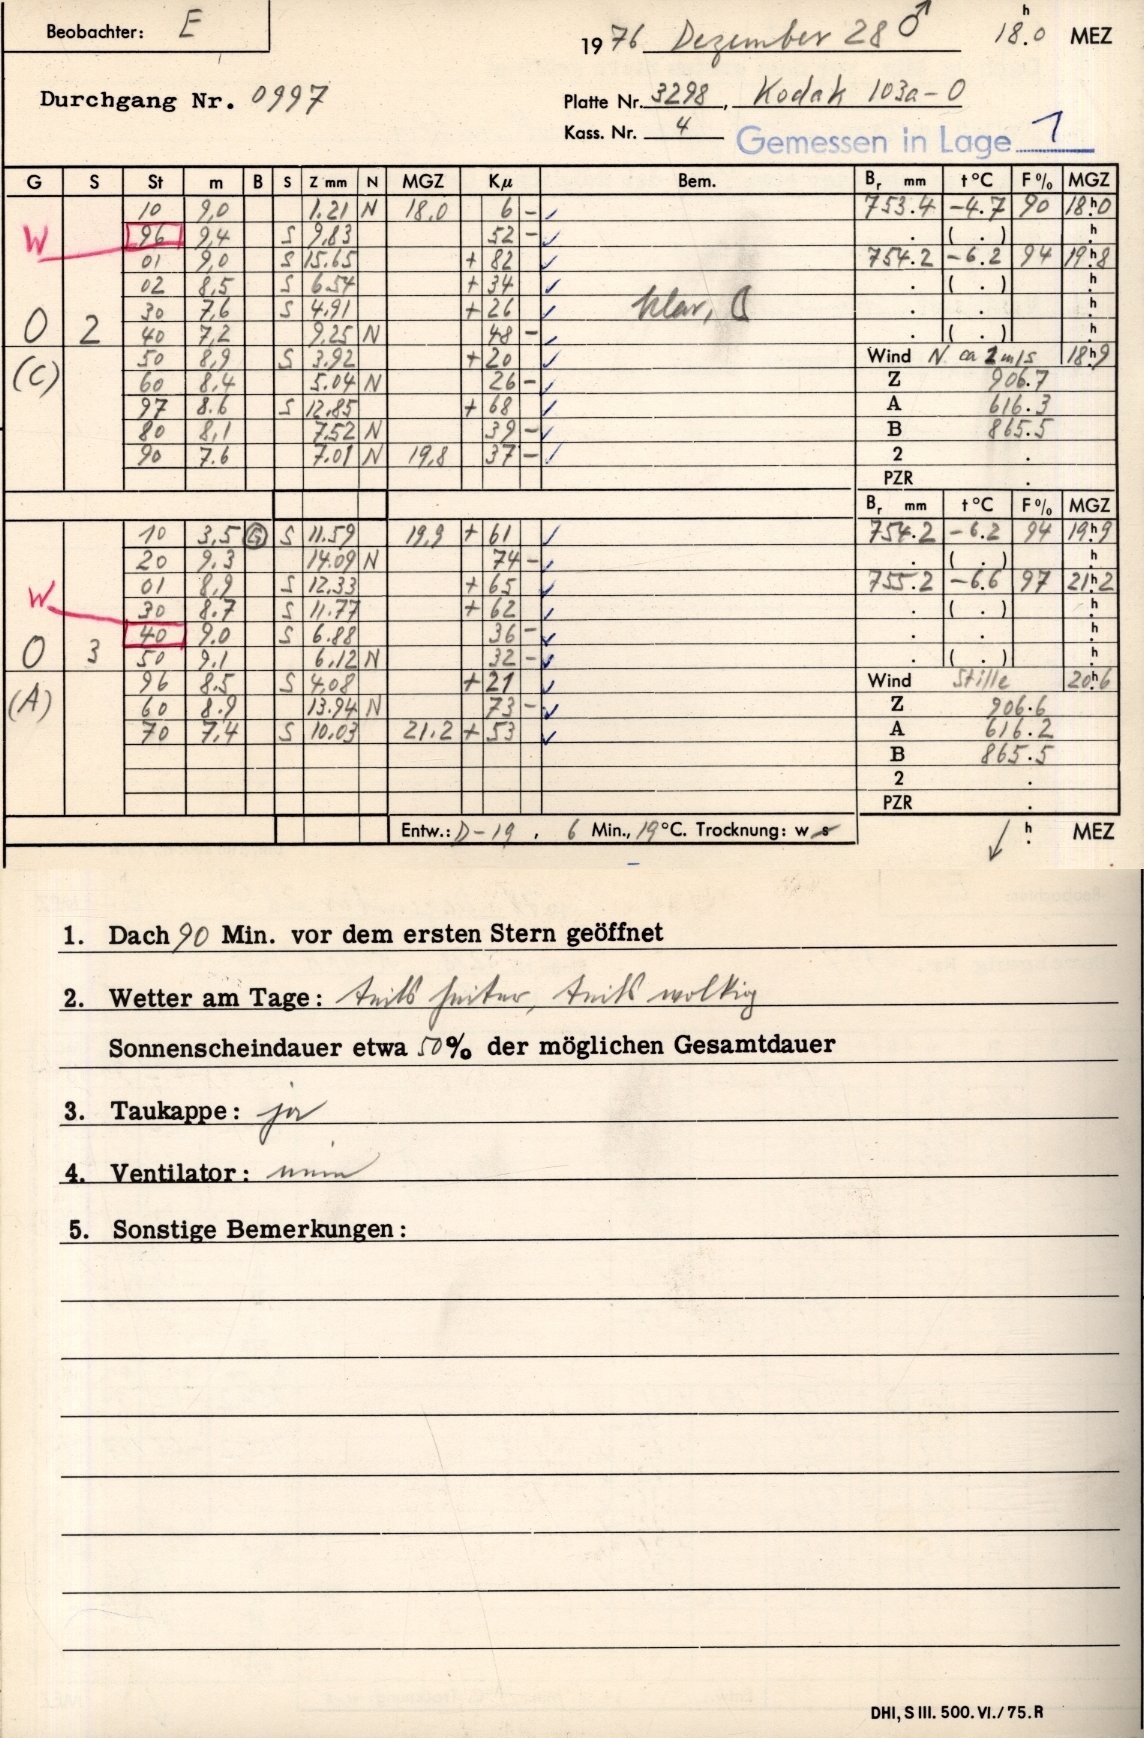 Beobachter: E
1976 Dezember 28 ♂ 18.0 h MEZ
Durchgang Nr. 0997
Platte Nr. 3298, Kodak 103a-O
Kass. Nr. 4
Gemessen in Lage 1
G S St m B S Z mm N MGZ Kμ Bem. Br mm t °C F % MGZ
10 9,0 1.21 N 18,0 6 - ✓ 753.4 -4.7 90 18h0
W 96 9,4 S 9.83 52 - ✓ . ( . ) h
01 9,0 S 15.65 + 82 ✓ 754.2 -6.2 94 19h8
02 8,5 S 6.54 + 34 ✓ . ( . ) h
O 2 30 7,6 S 4.91 + 26 ✓ klar, . . h
40 7,2 9.25 N 48 - ✓ . ( . ) h
(C) 50 8,9 S 3.92 + 20 ✓ Wind N ca 2 m/s 18h9
60 8.4 5.04 N 26 - ✓ Z 906.7
97 8.6 S 12.85 + 68 ✓ A 616.3
80 8,1 7.52 N 39 - ✓ B 865.5
90 7.6 7.01 N 19,8 37 - ✓ 2 .
PZR .
Br mm t °C F % MGZ
10 3,5 G S 11.59 19,9 + 61 ✓ 754.2 -6.2 94 19h9
20 9.3 14.09 N 74 - ✓ . ( . ) h
W 01 8,9 S 12.33 + 65 ✓ 755.2 -6.6 97 21h2
30 8.7 S 11.77 + 62 ✓ . ( . ) h
40 9.0 S 6.88 36 - ✓ . . h
O 3 50 9.1 6.12 N 32 - ✓ . ( . ) h
(A) 96 8.5 S 4.08 + 21 ✓ Wind Stille 20h6
60 8.9 13.94 N 73 - ✓ Z 906.6
70 7,4 S 10.03 21.2 + 53 ✓ A 616.2
B 865.5
2 .
PZR .
Entw.: D-19, 6 Min., 19 °C. Trocknung: w s
h MEZ
1. Dach 90 Min. vor dem ersten Stern geöffnet
2. Wetter am Tage: teils heiter, teils wolkig
Sonnenscheindauer etwa 50% der möglichen Gesamtdauer
3. Taukappe: ja
4. Ventilator: nein
5. Sonstige Bemerkungen:
DHI, S III. 500. VI./75. R